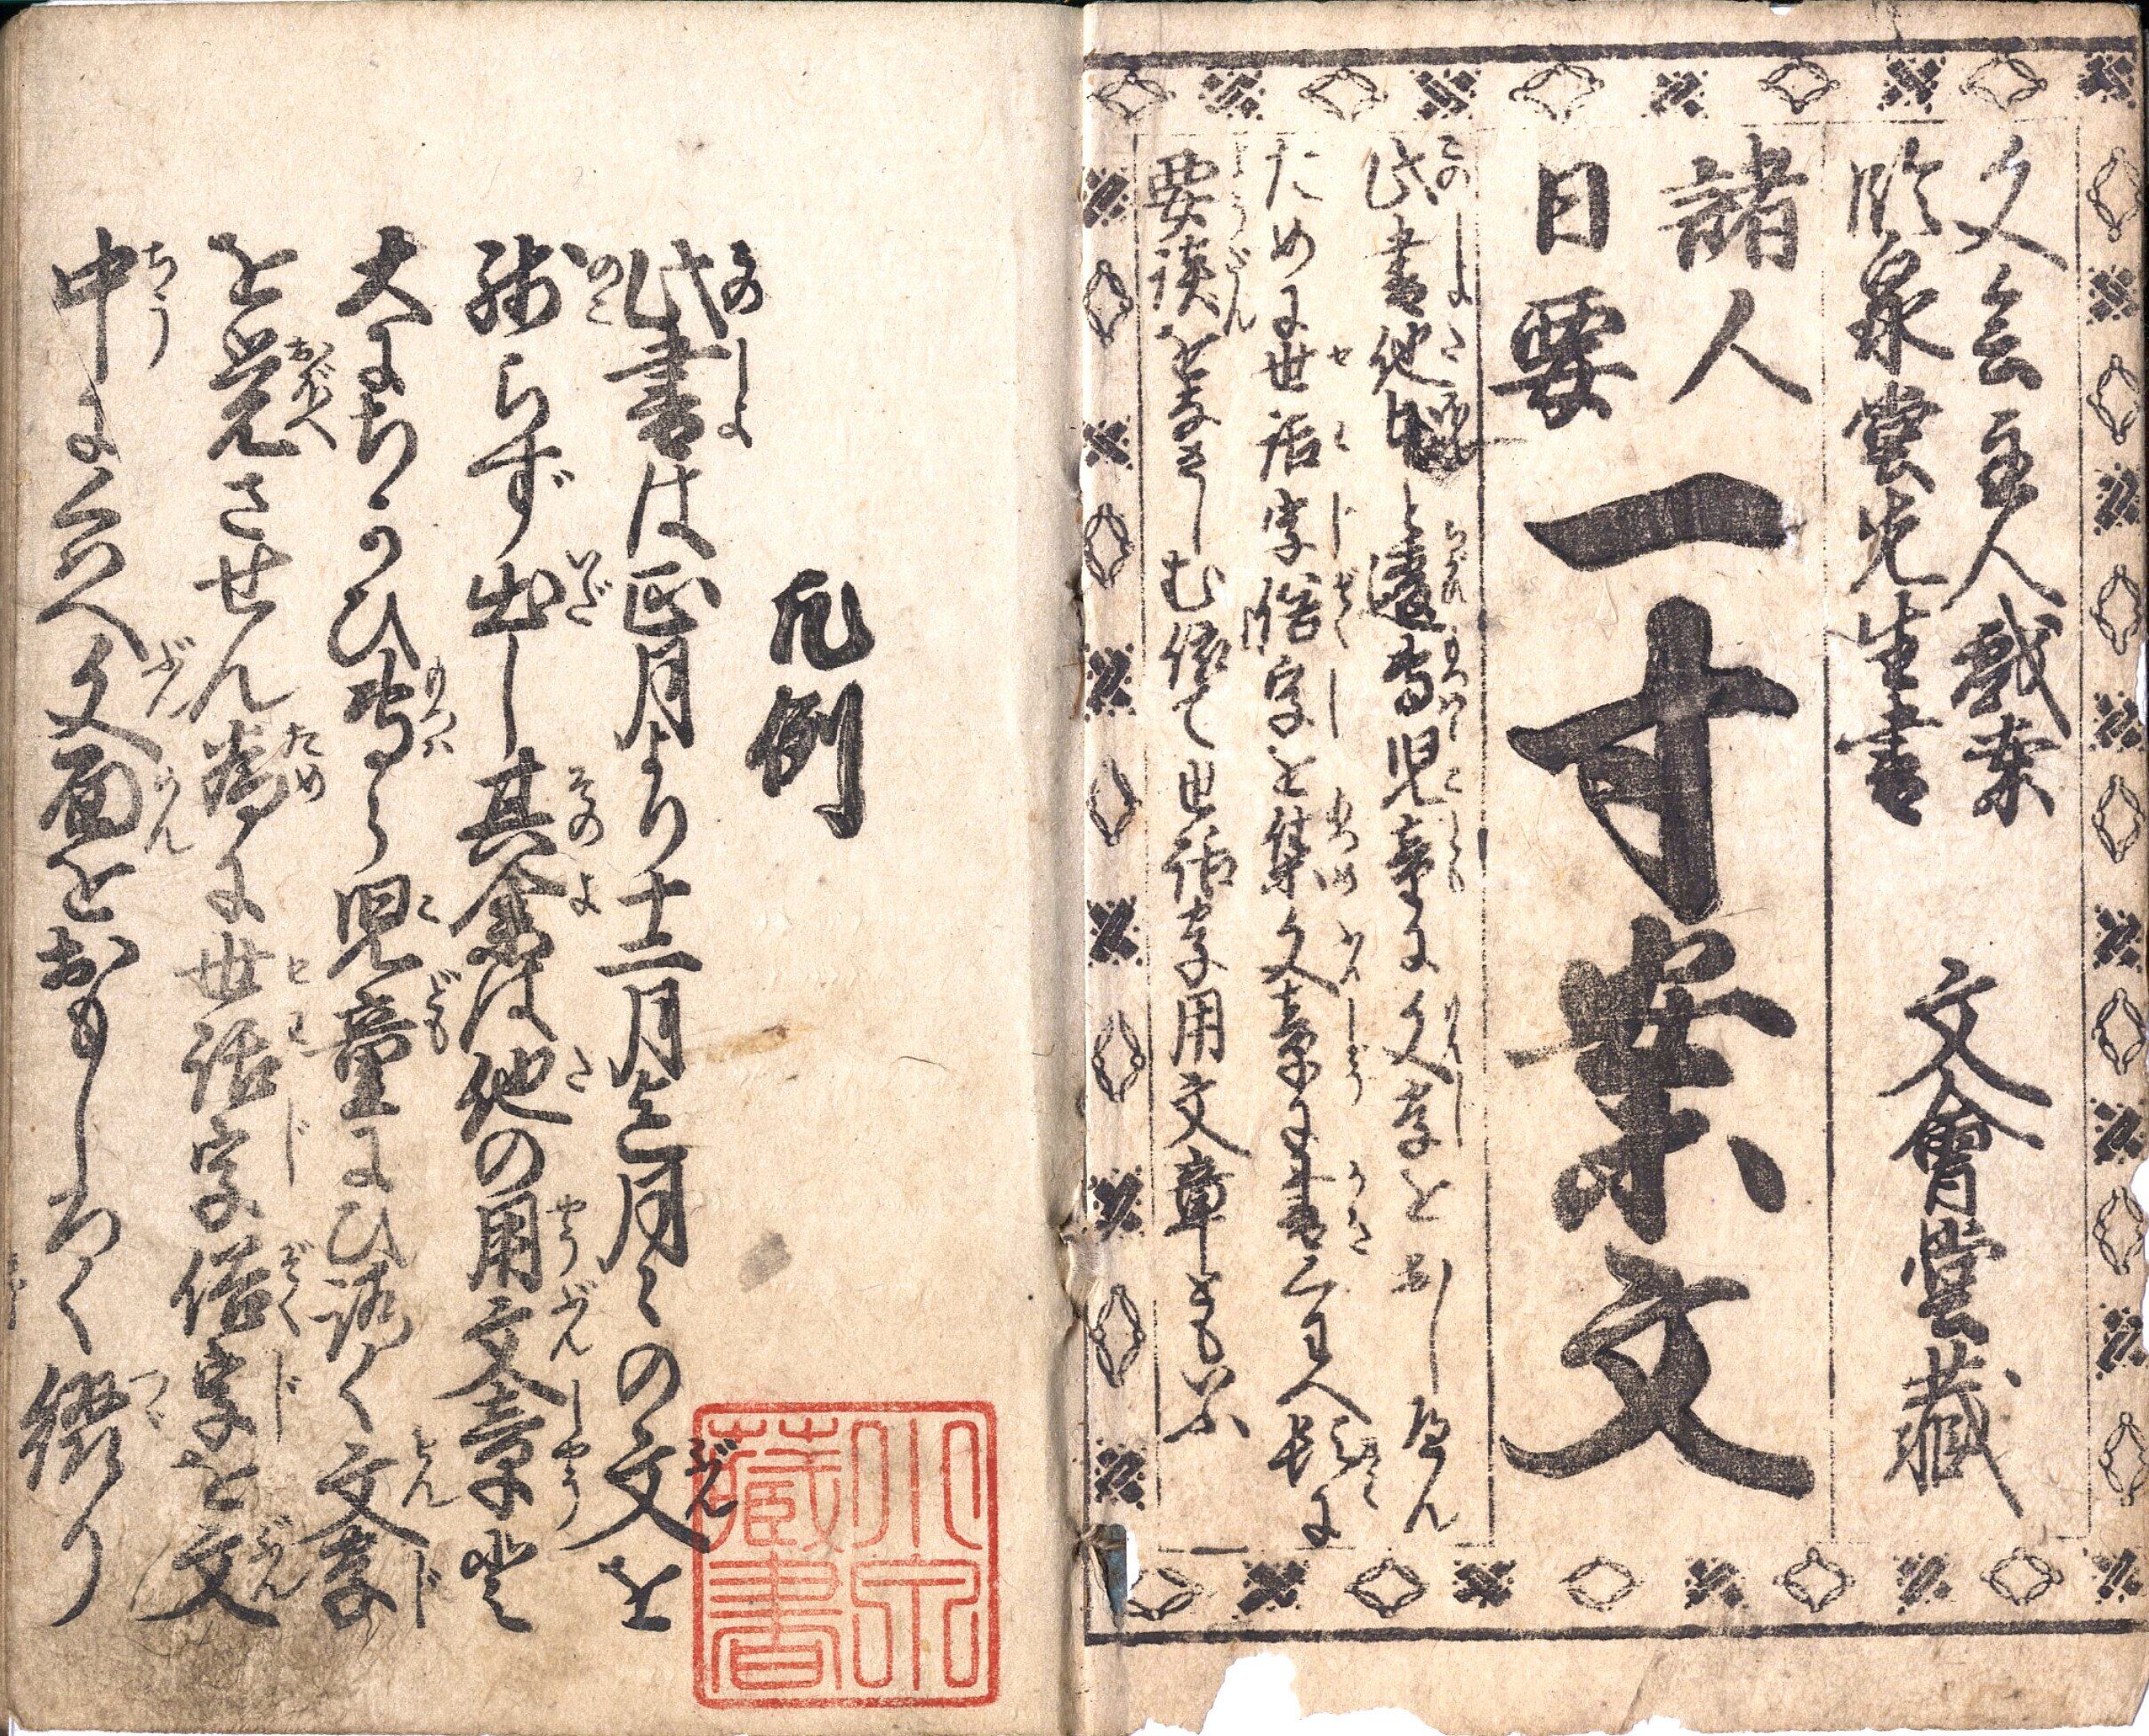 文会主人戯案
臨泉堂先生書
文會堂藏
諸人
日要
一寸案文
此書他書と違専児童に文字を出しやらん
ため世話字俗字を集文章に書く其人長に
要談をなさしむ依て世話字用文章ともいふ
凡例
此書は正月より十二月迄月々の文を
残らず出し其余は他の用文章と
大にちかひ専ら児童にひ諸く文字
を覚させん為に世話字俗字を文
中に加へ文面をおもしろく綴り
小泉
藏書